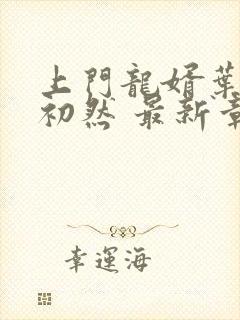 上門龍婿葉
初然 最新章
幸運海